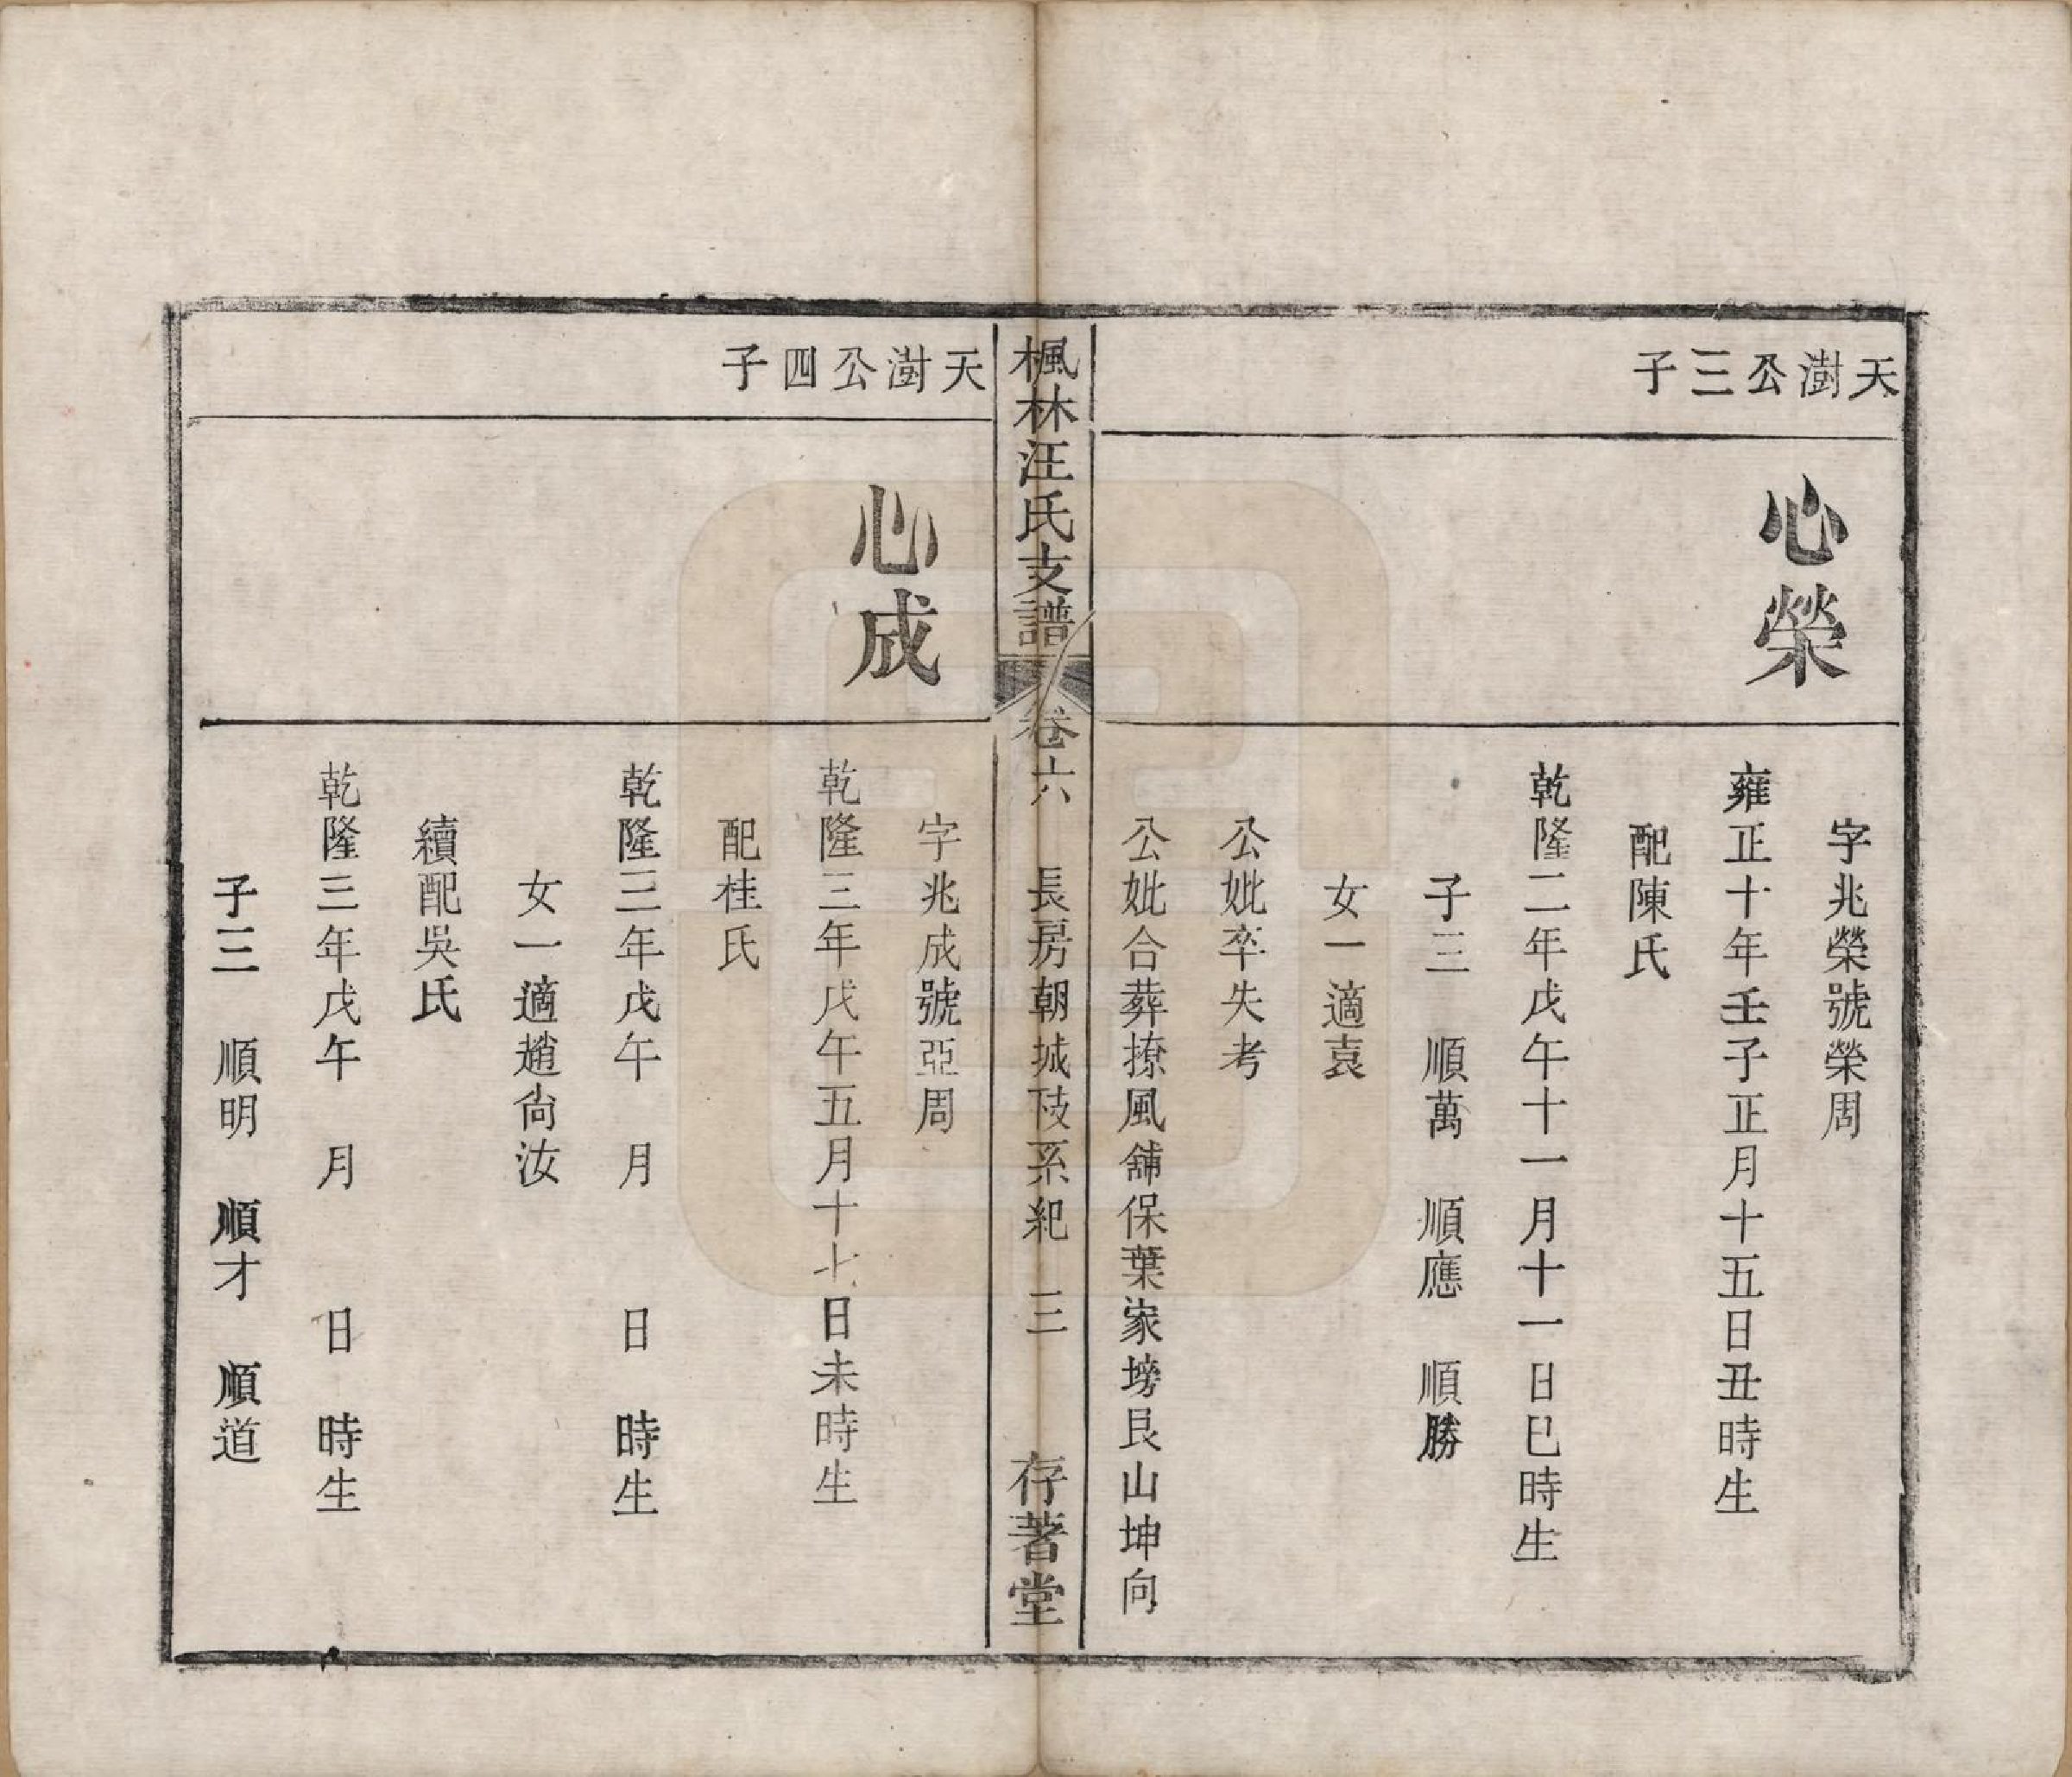 天澍公三子
心榮
字兆榮號榮周
雍正十年壬子正月十五日丑時生
配陳氏
乾隆二年戊午十一月十一日巳時生
子三　順萬　順應　順勝
女一適袁
公妣卒失考
公妣合葬撩風舖保葉家塝艮山坤向
楓林汪氏支譜
卷六　長房朝城𠡠系紀　三
存著堂
天澍公四子
心成
字兆成號亞周
乾隆三年戊午五月十七日未時生
配桂氏
乾隆三年戊午　月　　日　時生
女一適趙尙汝
續配吳氏
乾隆三年戊午　月　　日　時生
子三　順明　順才　順道